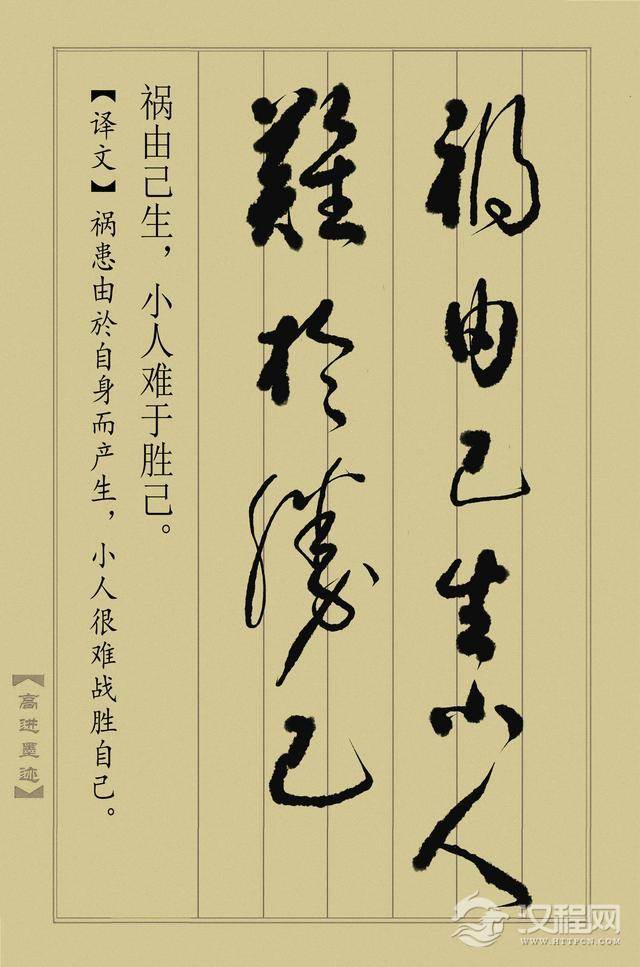 禍由己生小人
難於勝己
祸由己生，小人难于胜己。
【译文】祸患由於自身而产生，小人很难战胜自己。
【高进墨迹】
汉程网
WWW.HTTPCN.COM